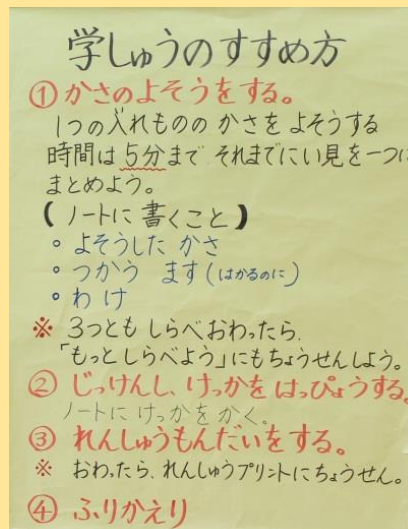 学しゅうのすすめ方
① かさのよそうをする。
1つの入れものの かさを よそうする
時間は 5分まで それまでにい見を一つに
まとめよう。
(ノートに 書くこと)
○ よそうした かさ
○ つかう ます(はかるのに)
○ わけ
※ 3つとも しらべおわったら、
「もっとしらべよう」にもちょうせんしよう。
② じっけんし、けっかを はっぴょうする。
ノートに けっかを かく。
③ れんしゅうもんだいをする。
※ おわったら、れんしゅうプリントにちょうせん。
④ ふりかえり